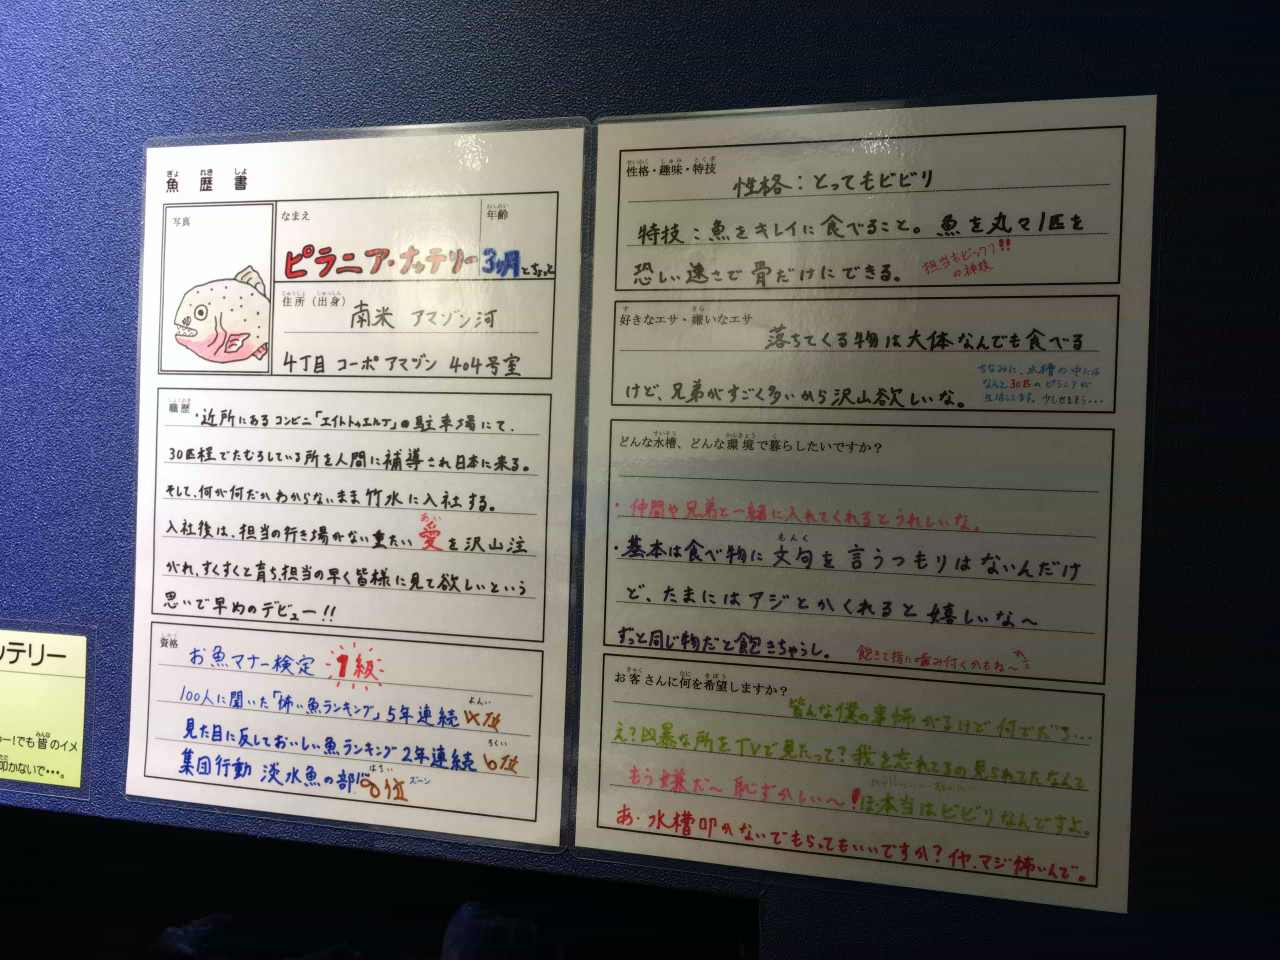 魚歴書
写真
なまえ
年齢
ピラニア・ナッテリー 3ヶ月とちょっと
住所(出身)
南米 アマゾン河
4丁目 コーポアマゾン 404号室
職歴
・近所にあるコンビニ「エイトトゥエルブ」の駐車場にて、
30匹程でたむろしている所を人間に補導され日本に来る。
そして、何が何だかわからないまま竹水に入社する。
入社後は、担当の行き場のない重たい愛を沢山注
がれ、すくすくと育ち、担当の早く皆様に見て欲しいという
思いで早めのデビュー!!
資格
お魚マナー検定 1級
100人に聞いた「怖い魚ランキング」5年連続4位
見た目に反しておいしい魚ランキング2年連続6位
集団行動 淡水魚の部 8位 ズーン
性格・趣味・特技
性格:とってもビビリ
特技:魚をキレイに食べること。魚を丸々1匹を
恐しい速さで骨だけにできる。
担当もビックリ!!
の神技
好きなエサ・嫌いなエサ
落ちてくる物は大体なんでも食べる
けど、兄弟がすごく多いから沢山欲しいな。
ちなみに、水槽の中には
なんと30匹のピラニアが
生活してます。少しせまそう・・・
どんな水槽、どんな環境で暮らしたいですか?
・仲間や兄弟と一緒に入れてくれるとうれしいな。
・基本は食べ物に文句を言うつもりはないんだけ
ど、たまにはアジとかくれると嬉しいな〜
ずっと同じ物だと飽きちゃうし。
飽きて指に噛み付くかもね〜
お客さんに何を希望しますか?
皆んな僕の事怖がるけど何でだろ・・・
え?凶暴な所をTVで見たって?我を忘れてるの見られてたなんて
もう嫌だ〜 恥ずかしい〜!ほ・本当はビビリなんですよ。
あ・水槽叩かないでもらってもいいですか?イヤ、マジ怖いんで。
ッテリー
ー!でも皆のイメ
叩かないで・・・。